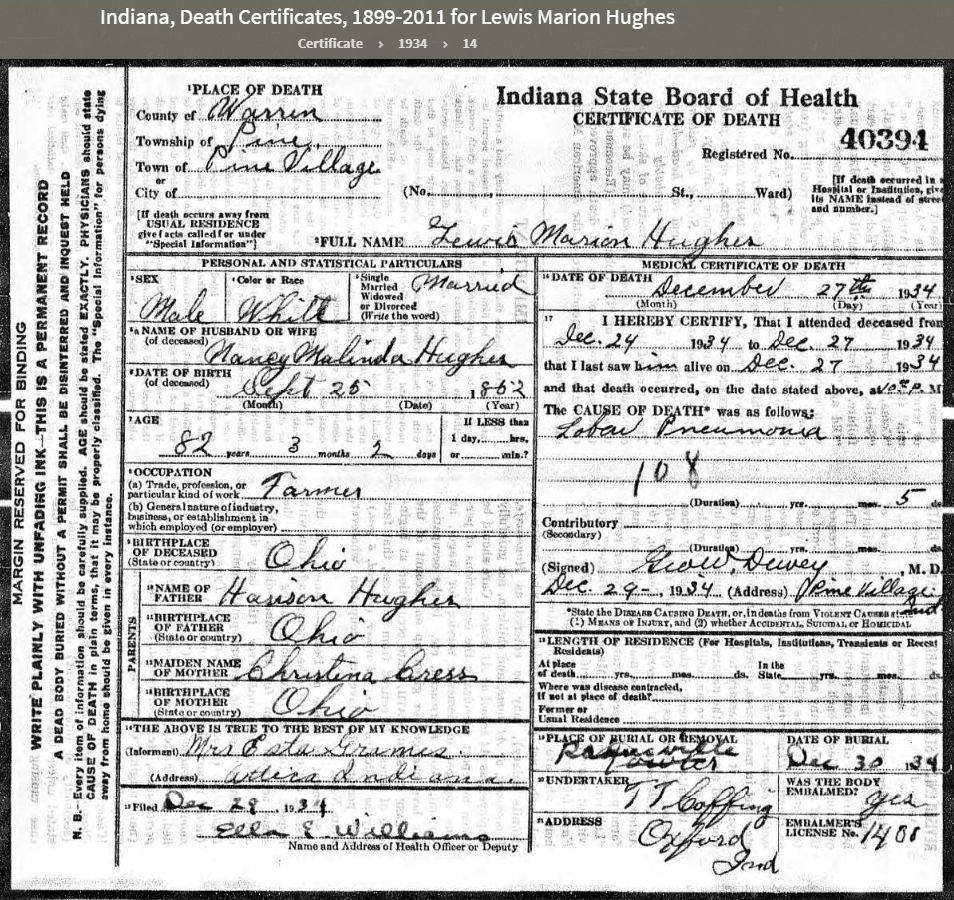 Indiana, Death Certificates, 1899-2011 for Lewis Marion Hughes
Certificate › 1934 › 14
MARGIN RESERVED FOR BINDING
WRITE PLAINLY WITH UNFADING INK—THIS IS A PERMANENT RECORD
A DEAD BODY BURIED WITHOUT A PERMIT SHALL BE DISINTERRED AND INQUEST HELD
N. B.—Every item of information should be carefully supplied. AGE should be stated EXACTLY. PHYSICIANS should state
CAUSE OF DEATH in plain terms, that it may be properly classified. The "Special Information" for persons dying
away from home should be given in every instance.
¹PLACE OF DEATH
County of Warren
Township of Pine
Town of Pine Village
or
City of
Indiana State Board of Health
CERTIFICATE OF DEATH
Registered No. 40394
(No. St., Ward)
[If death occurred in a
Hospital or Institution, give
its NAME instead of street
and number.]
[If death occurs away from
USUAL RESIDENCE
give facts called for under
"Special Information"]
²FULL NAME Lewis Marion Hughes
PERSONAL AND STATISTICAL PARTICULARS
³SEX
Male
⁴Color or Race
White
⁵Single
Married
Widowed
or Divorced
(Write the word)
Married
⁵ᵃNAME OF HUSBAND OR WIFE
(of deceased) Nancy Malinda Hughes
⁶DATE OF BIRTH
(of deceased) Sept 25 1852
(Month) (Date) (Year)
⁷AGE
82 years 3 months 2 days
If LESS than
1 day, hrs.
or min.?
⁸OCCUPATION
(a) Trade, profession, or
particular kind of work Farmer
(b) General nature of industry,
business, or establishment in
which employed (or employer)
⁹BIRTHPLACE
OF DECEASED
(State or country) Ohio
PARENTS
¹⁰NAME OF
FATHER Harison Hughes
¹¹BIRTHPLACE
OF FATHER
(State or country) Ohio
¹²MAIDEN NAME
OF MOTHER Christina Cress
¹³BIRTHPLACE
OF MOTHER
(State or country) Ohio
¹⁴THE ABOVE IS TRUE TO THE BEST OF MY KNOWLEDGE
(Informant) Mrs Esta Grames
(Address) Attica Indiana.
¹⁵Filed Dec 28, 1934
Ella E Williams
Name and Address of Health Officer or Deputy
MEDICAL CERTIFICATE OF DEATH
¹⁶DATE OF DEATH
December 27th 1934
(Month) (Day) (Year)
¹⁷ I HEREBY CERTIFY, That I attended deceased from
Dec. 24 1934 to Dec. 27 1934
that I last saw him alive on Dec. 27 1934
and that death occurred, on the date stated above, at P. M
The CAUSE OF DEATH* was as follows:
Lobar Pneumonia
108
(Duration) yrs. mos. 5 ds.
Contributory
(Secondary)
(Duration) yrs. mos. ds.
(Signed) Geo W. Dewey, M. D.
Dec. 29-, 1934 (Address) Pine Village
Ind
*State the DISEASE CAUSING DEATH, or, in deaths from VIOLENT CAUSES state
(1) MEANS OF INJURY, and (2) whether ACCIDENTAL, SUICIDAL, or HOMICIDAL
¹⁸LENGTH OF RESIDENCE (For Hospitals, Institutions, Transients or Recent
Residents)
At place In the
of death yrs. mos. ds. State yrs. mos. ds.
Where was disease contracted,
if not at place of death?
Former or
Usual Residence
¹⁹PLACE OF BURIAL OR REMOVAL
Fowler
DATE OF BURIAL
Dec 30 1934
²⁰UNDERTAKER
T T Coffing
WAS THE BODY
EMBALMED? Yes
²¹ADDRESS
Oxford
Ind
EMBALMER'S
LICENSE No.